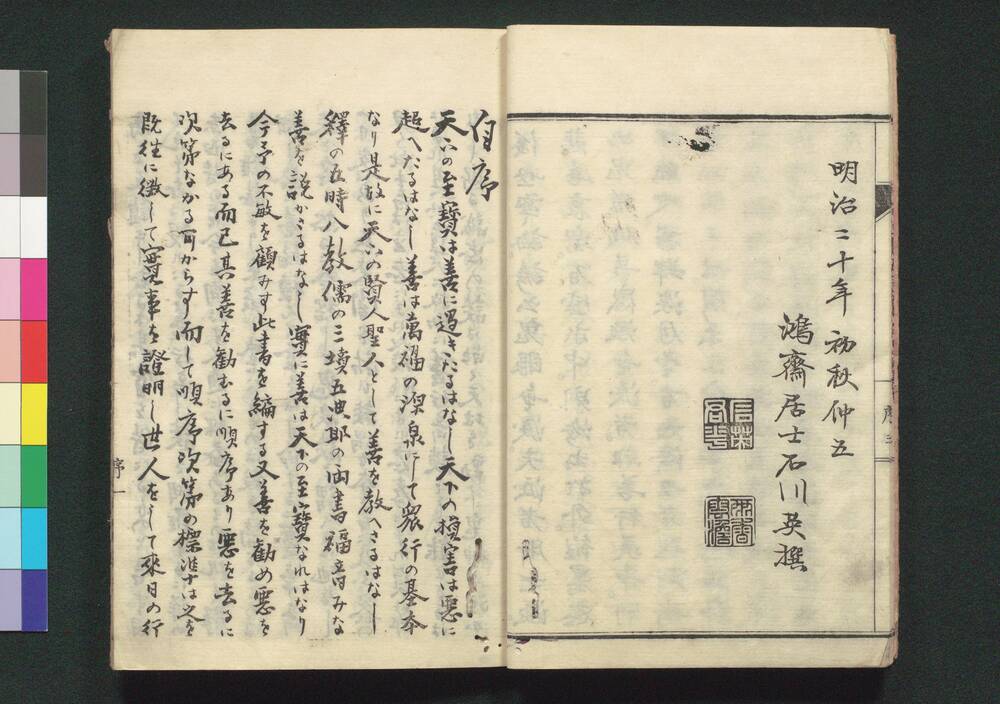 明治二十年初秋仲五
鴻齋居士石川英撰
序三
自序
天下の至寶は善に過きたるはなし天下の損害は惡に
超へたるはなし善は萬福の源泉にして衆行の基本
なり是故に天下の賢人聖人として善を教へさるはなし
釋の五時八教儒の三墳五典耶の両書福音みな
善を説かさるはなし實に善は天下の至寶なれはなり
今予の不敏を顧みす此書を編する又善を勧め惡を
去るにある而已其善を勧むるに順序あり惡を去るに
次第なかる可からす而して順序次第の標準は之を
既往に徴して實事を證明し世人をして來日の行
序一